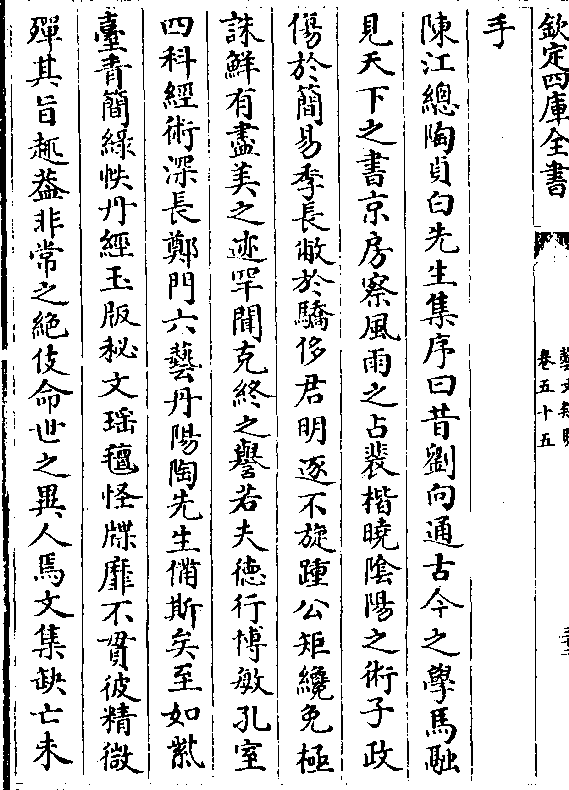 欽定四庫全書
藝文類聚
卷五十五
手
陳江總陶貞白先生集序曰昔劉向通古今之學馬融
見天下之書京房察風雨之占裴楷曉陰陽之術子政
傷於簡易季長敝於驕侈君明逐不旋踵公矩纔免極
誅鮮有盡美之迹罕聞克終之譽若夫徳行博敏孔室
四科經術深長鄭門六藝丹陽陶先生備斯矣至如紫
臺青簡緑帙丹經玉版秘文瑶䡖怪牒靡不貫彼精微
殫其旨趣葢非常之絶伎命世之異人焉文集缺亡未